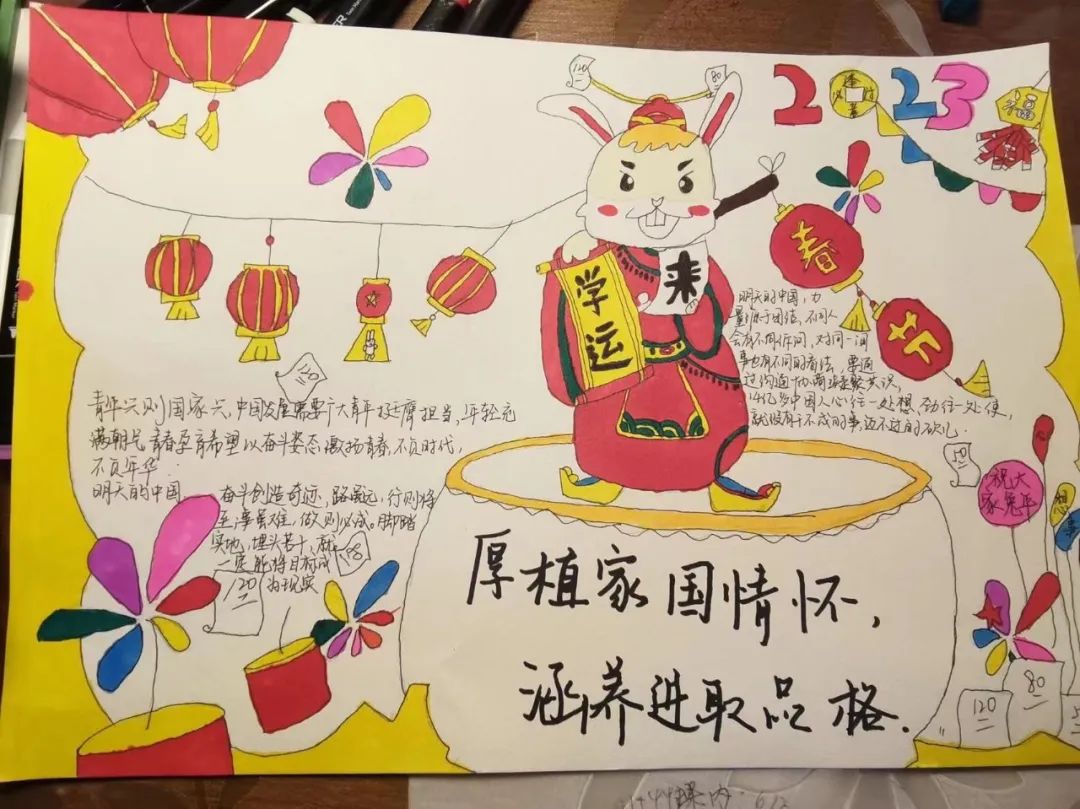 120
80
2023
福
春
节
学
运
来
明天的中国，力
量源于团结，不同人
会有不同诉问，对同一问
事也有不同的看法，要通
过沟通协商凝聚共识，
14亿多中国人心往一处想，劲往一处使，
就没有干不成的事，迈不过的砍儿．
120
青年兴则国家兴，中国发展需要广大青年挺膺担当，年轻充
满朝气，青春孕育希望以奋斗姿态激扬青春，不负时代，
不负年华．
明天的中国，
奋斗创造奇迹，路虽远，行则将
至，事虽难，做则必成。脚踏
实地，埋头苦干，就
一定能将目标成
为现实
98
120
50
祝大
家兔年
想
事
厚植家国情怀，
涵养进取品格．
120
80
5